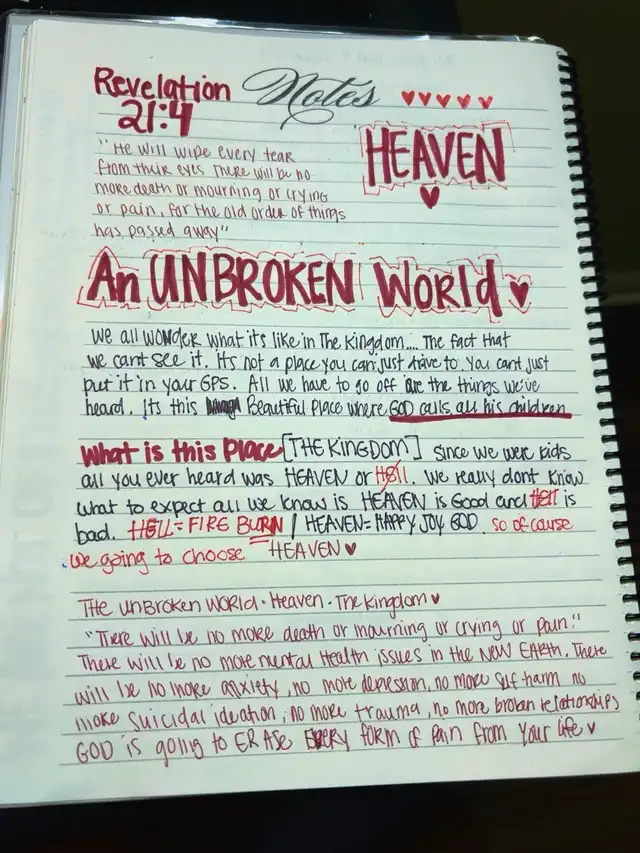 Revelation
21:4
Notes
HEAVEN
"He will wipe every tear
from their eyes There will be no
more death or mourning or crying
or pain, for the old order of things
has passed away"
An UNBROKEN World
we all wonder what its like in The Kingdom.... The fact that
we cant see it. Its not a place you can just drive to. You cant just
put it in your GPS. All we have to go off are the things we've
heard. Its this Beautiful Place where GOD calls all his children
What is this Place [THE KINGDOM] since we were kids
all you ever heard was HEAVEN or Hell. we really dont know
what to expect all we know is HEAVEN is Good and Hell is
bad. HELL= FIRE BURN / HEAVEN= HAPPY JOY GOD. so of cause
we going to choose HEAVEN
THE UNBROKEN WORLD · Heaven · The Kingdom
"There will be no more death or mourning or crying or pain."
There will be no more mental Health issues in the NEW EARTH. There
will be no more anxiety, no more depression, no more self harm no
more suicidal ideation, no more trauma, no more broken relationships
GOD is going to ERASE EVERY form of pain from your life